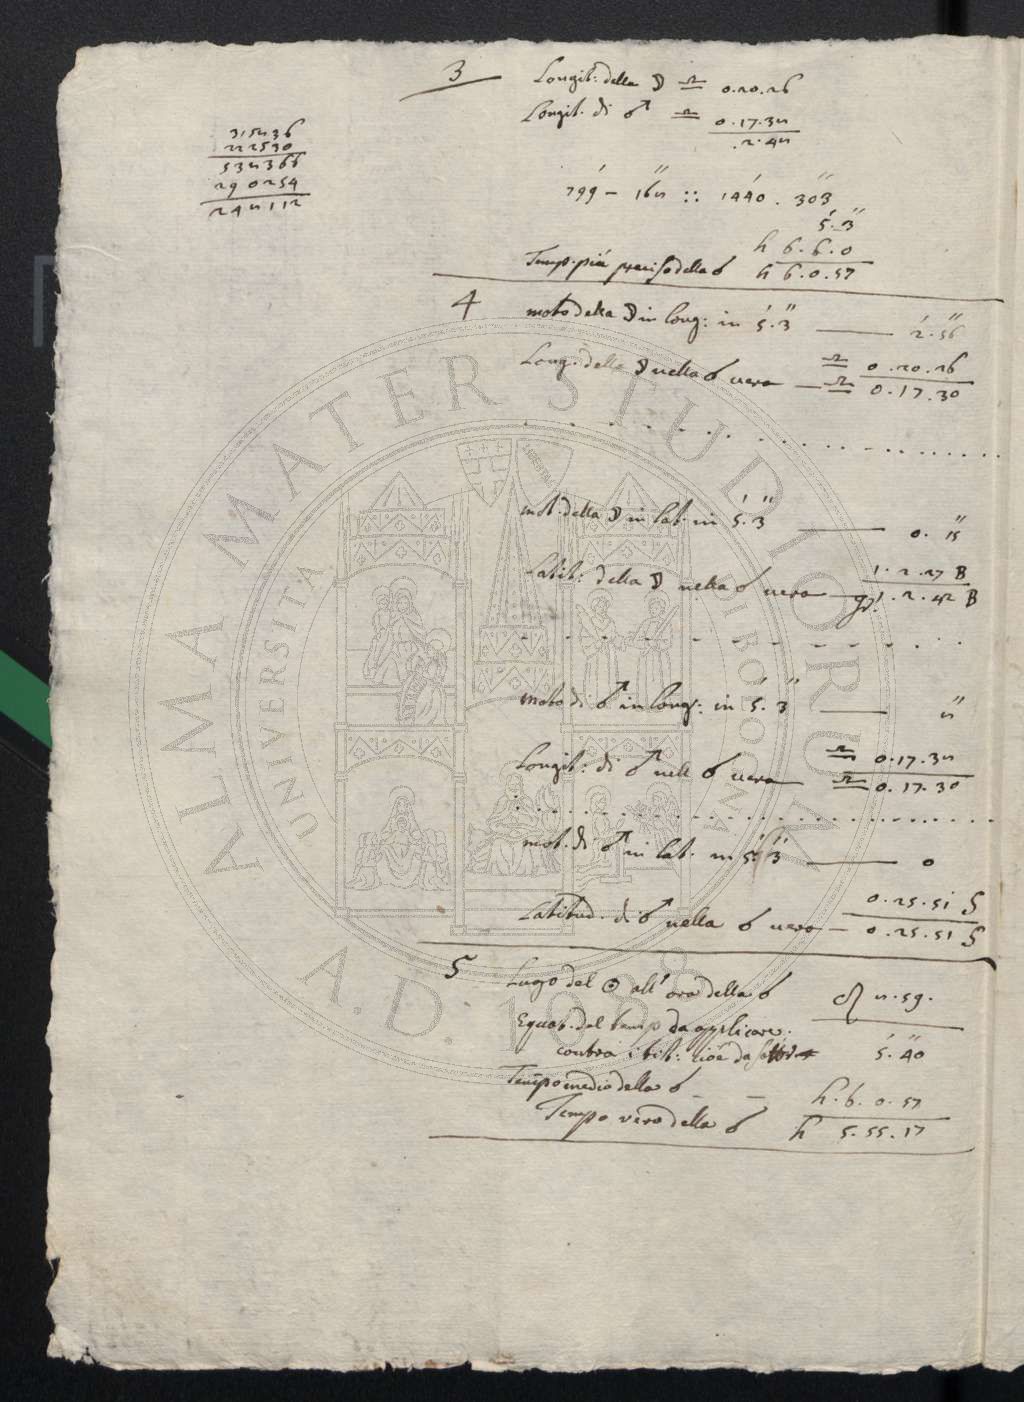 315836
222530
538366
290254
248112
3 Longit: della ☽ ♎ 0.20.26
Longit. di ♂ ♎ 0.17.38
.2.48
799' – 168'' :: 1440' . 303''
5'.3''
h 6.6.0
Temp. più preciso della ☌ h 6.0.57
4 moto della ☽ in long: in 5'.3'' — 2'.56''
Long. della ☽ nella ☌ vera — ♎ 0.20.26
♎ 0.17.30
mot. della ☽ in lat. in 5'.3'' — 0. 15''
1.2.27 B
Latit: della ☽ nella ☌ vera — gr. 1.2.42 B
moto di ♂ in long: in 5'.3'' — 8''
♎ 0.17.38
Longit: di ♂ nell ☌ vera ♎ 0.17.30
mot. di ♂ in lat. in 5'.3'' — 0
0.25.51 S
Latitud. di ♂ nella ☌ vera — 0.25.51 S
5 Lugo del ☉ all' ora della ☌ ♌ 8.59.
Equat. del temp da applicare.
contra i tit: cioè da 5'.40''
Tempo medio della ☌ – – h. 6.0.57
Tempo vero della ☌ h 5.55.17
ALMA MATER STUDIORUM
A.D. 1088
UNIVERSITÀ DI BOLOGNA